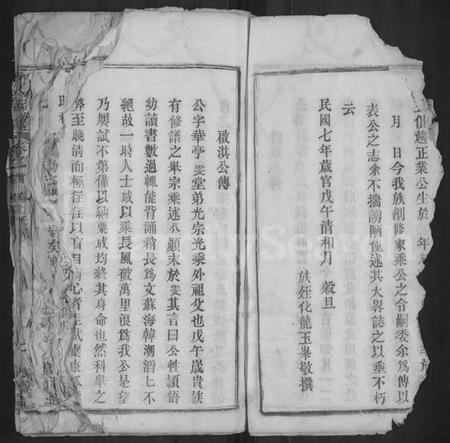 月 日今我族創修家乘公之令嗣委余爲傳以
表公之志余不揣謭陋僅述其大畧誌之以垂不朽
云
民國七年歲官戊午清和月 穀旦
族姪化龍玉峯敬撰
啟淇公傳
公字華亭 雯堂弟光宗光乘外祖父也戊午歲貴族
有修譜之舉宗乘述公顛末於雯其言曰公性頴悟
幼讀書數過輒能背誦稍長爲文蘇海韓潮滔滔不
絕故一時人士咸以乘長風破萬里浪爲我公是望
乃屢試不第僅以納粟成均終其身命也然科舉之